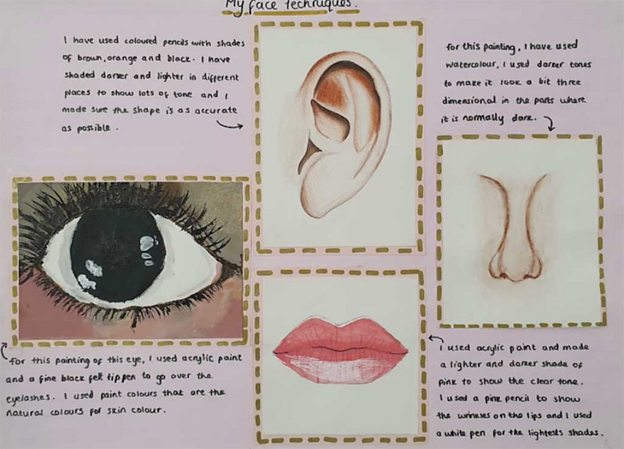 My face techniques.
I have used coloured pencils with shades
of brown, orange and black. I have
shaded darker and lighter in different
places to show lots of tone and I
made sure the shape is as accurate
as possible.
for this painting, I have used
watercolour, I used darker tones
to make it look a bit three
dimensional in the parts where
it is normally dark.
for this painting of this eye, I used acrylic paint
and a fine black felt tip pen to go over the
eyelashes. I used paint colours that are the
natural colours for skin colour.
I used acrylic paint and made
a lighter and darker shade of
pink to show the clear tone.
I used a pink pencil to show
the wrinkles on the lips and I used
a white pen for the lightests shades.